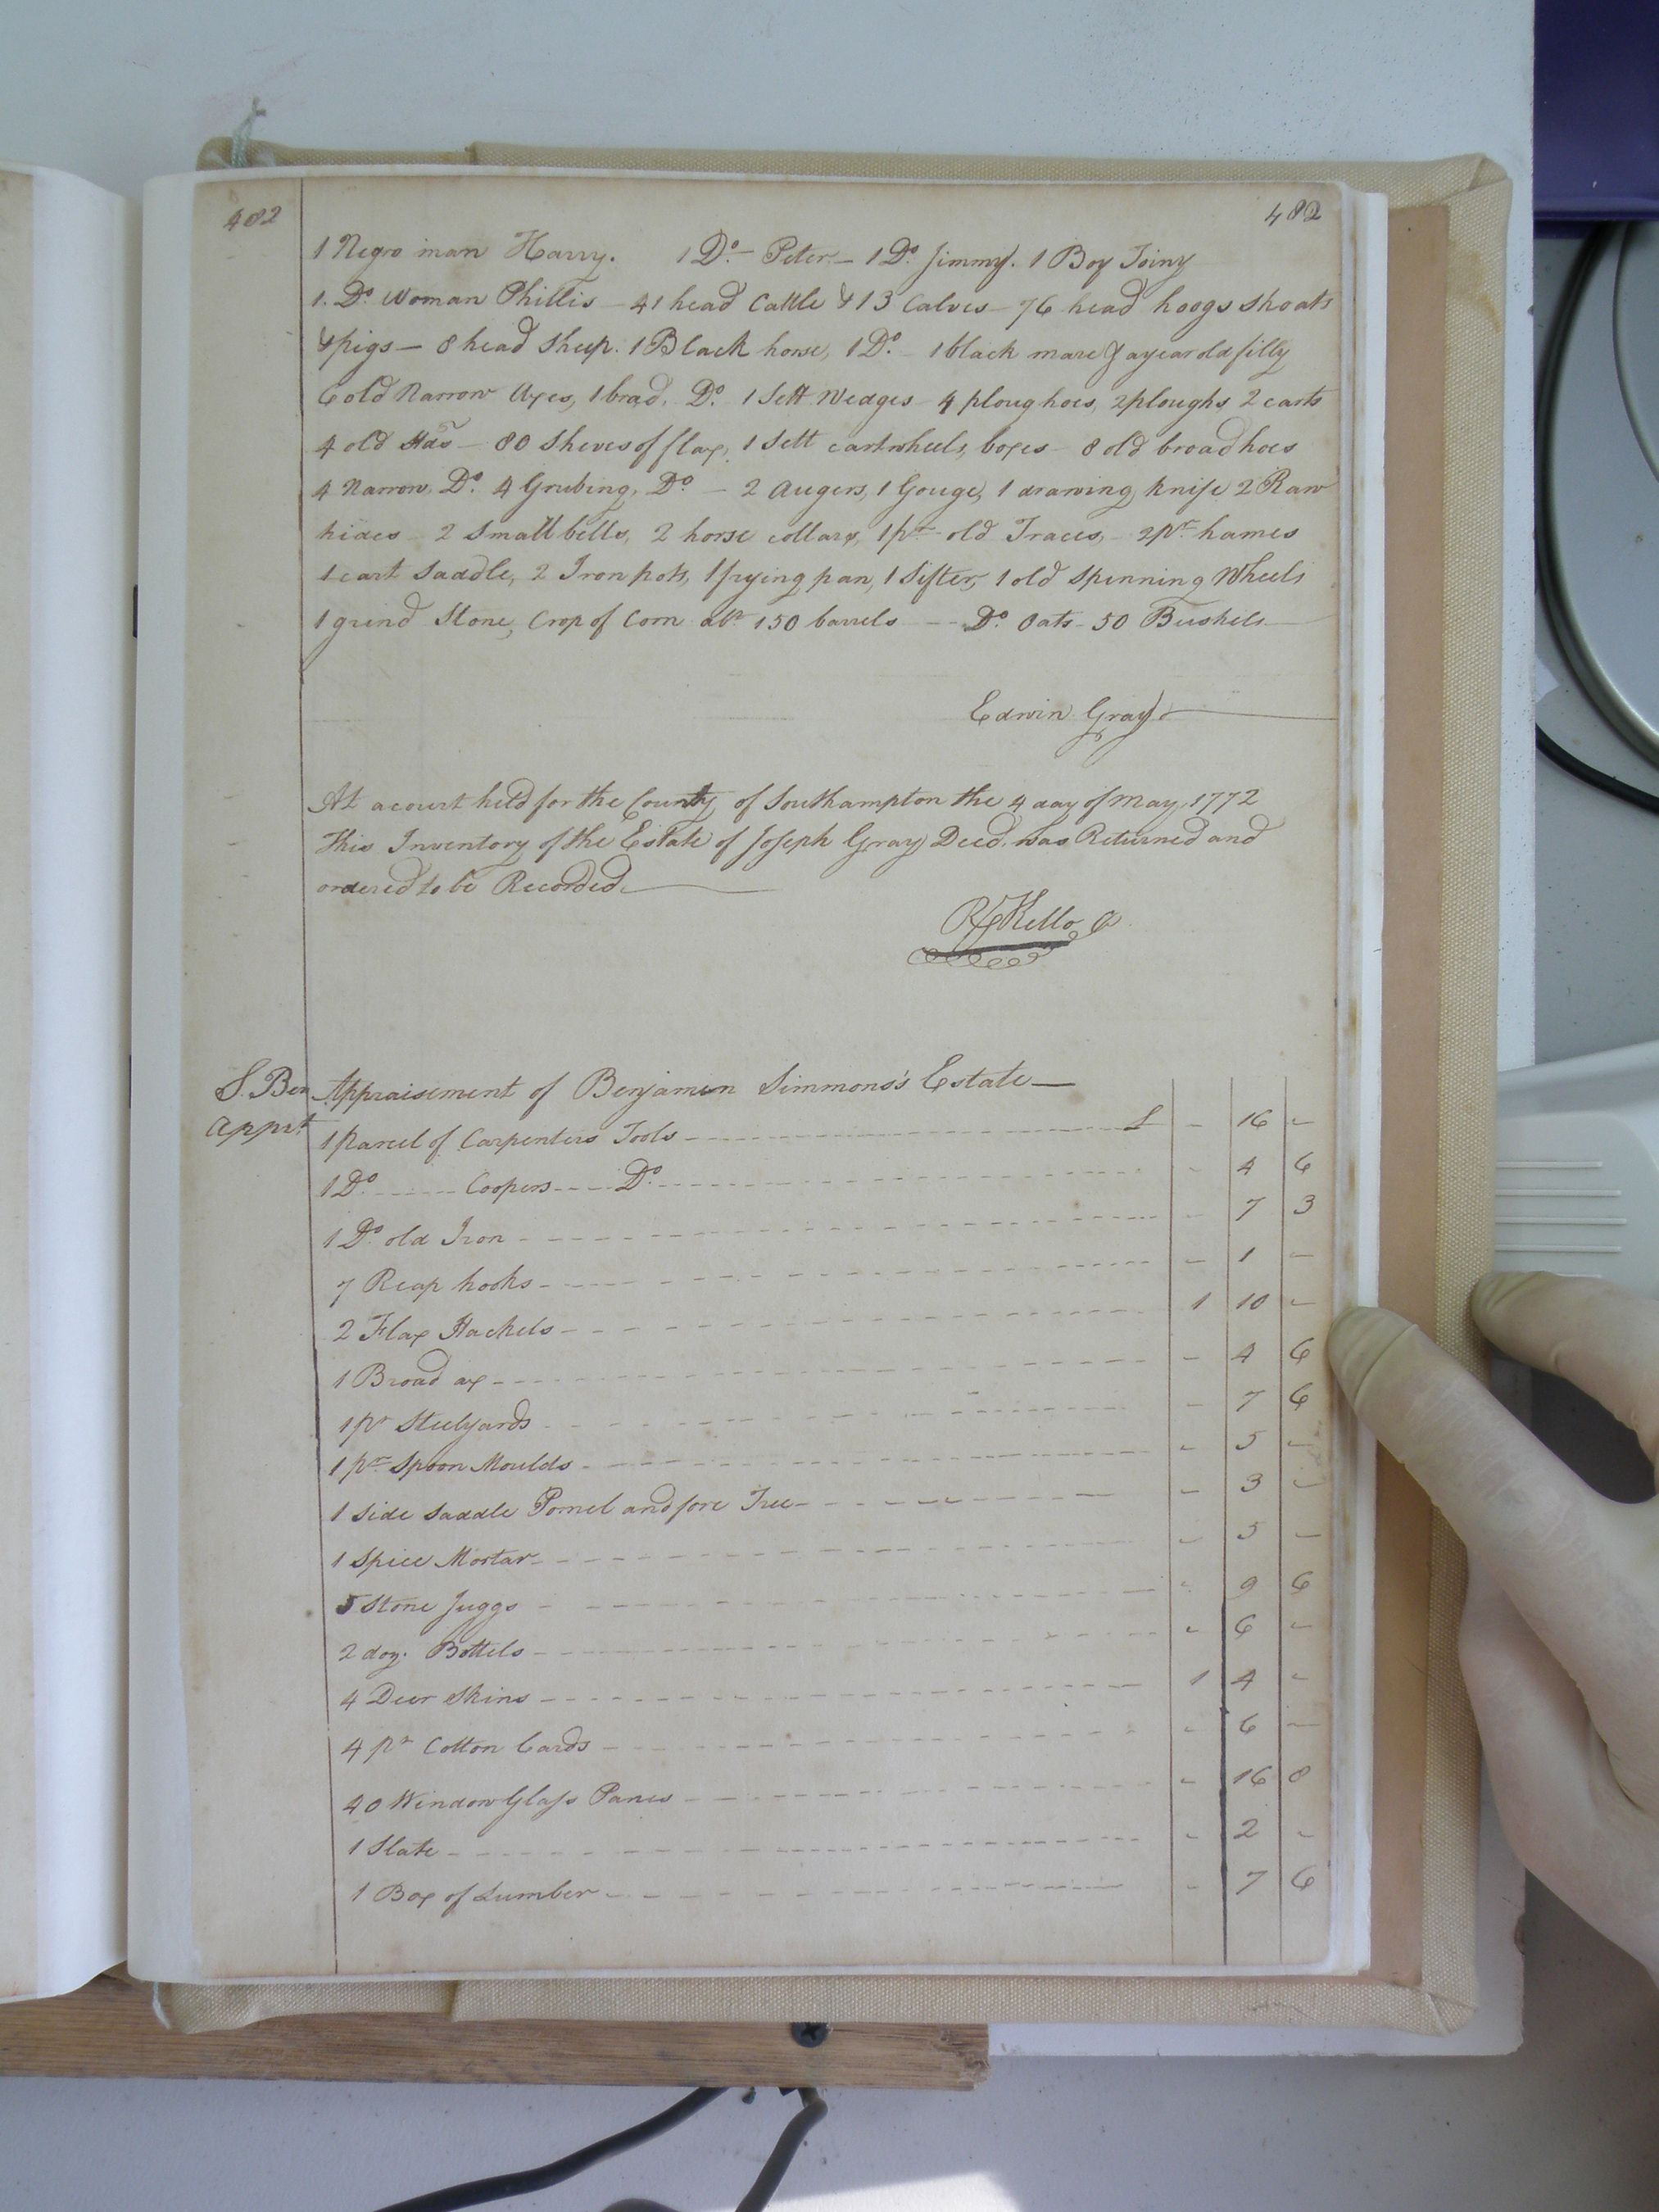 482 482
1 Negro man Harry. 1 Do. Peter - 1 Do. Jimmy. 1 Boy Joiny
1. Do. Woman Phillis - 41 head Cattle & 13 Calves - 76 head hoogs shoats
& pigs - 8 head sheep. 1 Black horse, 1 Do. - 1 black mare & a year old filly
6 old Narrow Axes, 1 brad. Do. 1 Sett Wedges 4 plough hoes, 2 ploughs 2 carts
4 old Hds - 80 Sheves of flax, 1 Sett cartwheels, boxes - 8 old broad hoes
4 Narrow, Do. 4 Grubing, Do. - 2 Augers, 1 Gouge, 1 drawing knife 2 Raw
hides - 2 Small bells, 2 horse collars, 1 pr old Traces, - 2 pr. hames
1 cart Saddle, 2 Iron pots, 1 frying pan, 1 Sifter, 1 old Spinning Wheels
1 grind Stone, Crop of Corn abt 150 barrels - - Do. Oats - 50 Bushels
Edwin Gray
At a court held for the County of Southampton the 4 day of May 1772
This Inventory of the Estate of Joseph Gray Decd. was Returned and
ordered to be Recorded
Kello
S. Ben Appraisement of Benjamin Simmons's Estate
Apprt 1 Parcel of Carpenters Tools £ - 16 -
1 Do Coopers Do. - 4 6
1 Do. old Iron - 7 3
7 Reap hooks - 1 -
2 Flax Hackels 1 10 -
1 Broad ax - 4 6
1 pr Steelyards - 7 6
1 pr Spoon Moulds - 5 -
1 Side Saddle Pomel and fore Tree - 3 -
1 Spice Mortar - 5 -
5 Stone Juggs - 9 6
2 doz. Bottels - 6 -
4 Deer Skins 1 4 -
4 pr Cotton Cards - 6 -
40 Window Glass Panes - 16 8
1 Slate - 2 -
1 Box of Lumber - 7 6